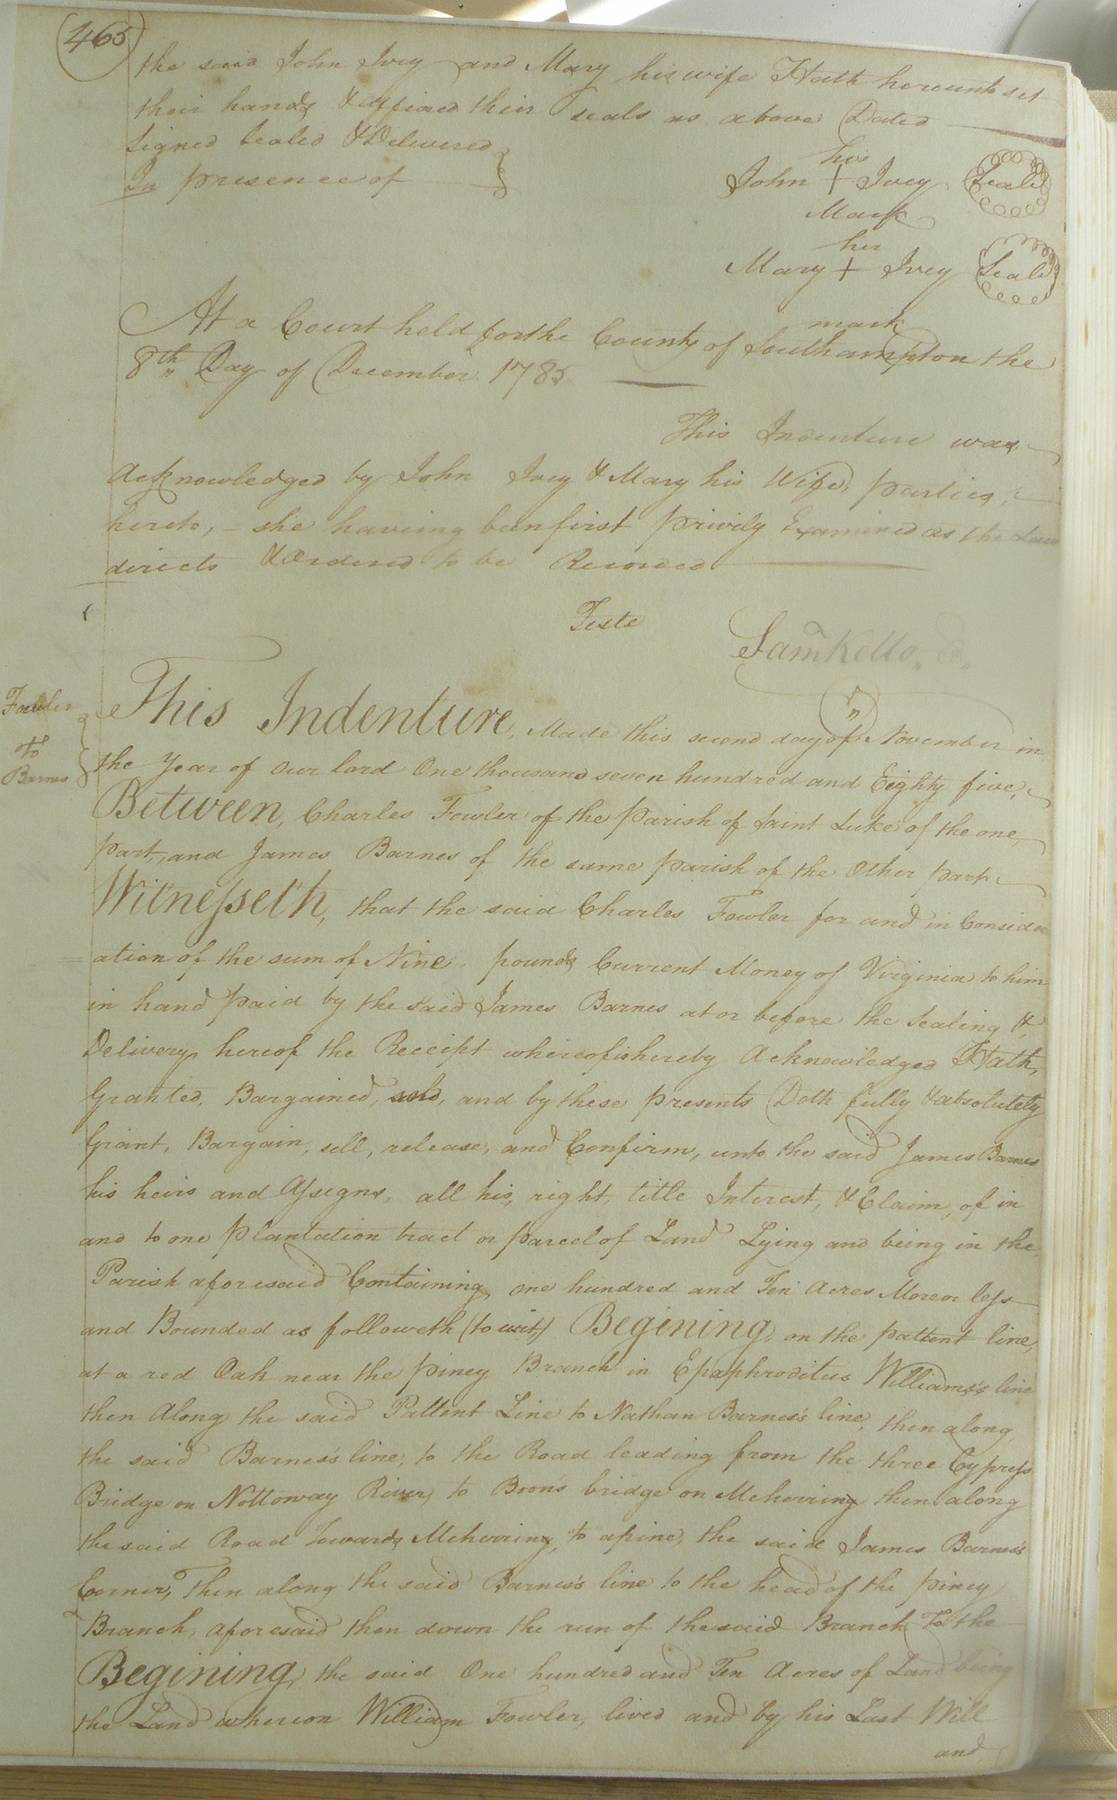 465
the said John Ivey and Mary his wife Hath hereunto set
their hands & affixed their seals as above Dated
Signed Sealed & Delivered
In presence of
his
John + Ivey Seal
Mark
her
Mary + Ivey Seal
mark
At a Court held for the County of Southampton the
8th Day of December 1785
This Indenture was
Acknowledged by John Ivey & Mary his Wife, parties,
hereto, - she having been first privily Examined as the Law
directs & Ordered to be Recorded
Teste
Saml Kello
Fowler
To
Barnes
This Indenture, Made this second day of November in
the Year of Our lord One thousand seven hundred and Eighty five,
Between, Charles Fowler of the Parish of Saint Luke of the one
part, and James Barnes of the same parish of the Other part
Witnesseth, that the said Charles Fowler for and in Consider
ation of the sum of Nine pounds Current Money of Virginia to him
in hand paid by the said James Barnes at or before the Sealing &
Delivery hereof the Receipt whereof is hereby Acknowledged Hath,
Granted, Bargained, sold, and by these presents Doth fully & absolutely
Grant, Bargain, sell, release, and Confirm, unto the said James Barnes
his heirs and Assigns, all his, right, title Interest, & Claim, of in
and to one plantation tract or parcel of Land Lying and being in the
Parish aforesaid Containing, one hundred and Ten Acres More or less
and Bounded as followeth (to wit) Begining, on the pattent line,
at a red Oak near the piney Branch in Epaphroditus Williams's line
then Along the said Pattent Line to Nathan Barnes's line, then along
the said Barnes's line, to the Road leading from the three Cypress
Bridge on Nottoway River, to Boon's bridge on Meherring then along
the said Road towards Meherring, to a pine, the said James Barnes's
Corner, Then along the said Barnes's line to the head of the piney
Branch, aforesaid then down the run of the said Branch To the
Begining, the said One hundred and Ten Acres of Land being
the Land whereon William Fowler, lived and by his Last Will
and